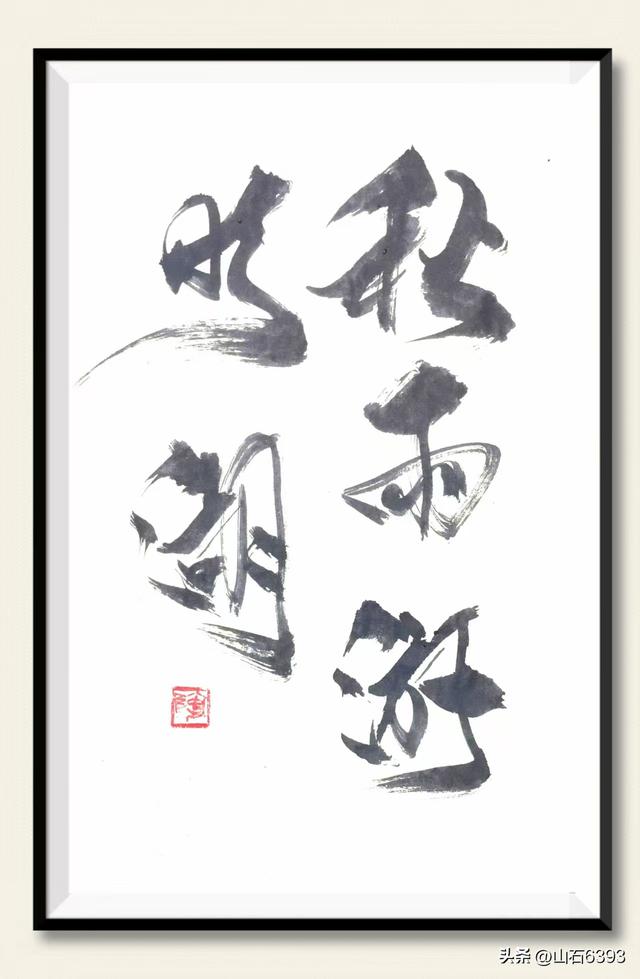 秋雨游
湖
陶
头条 @山石6393